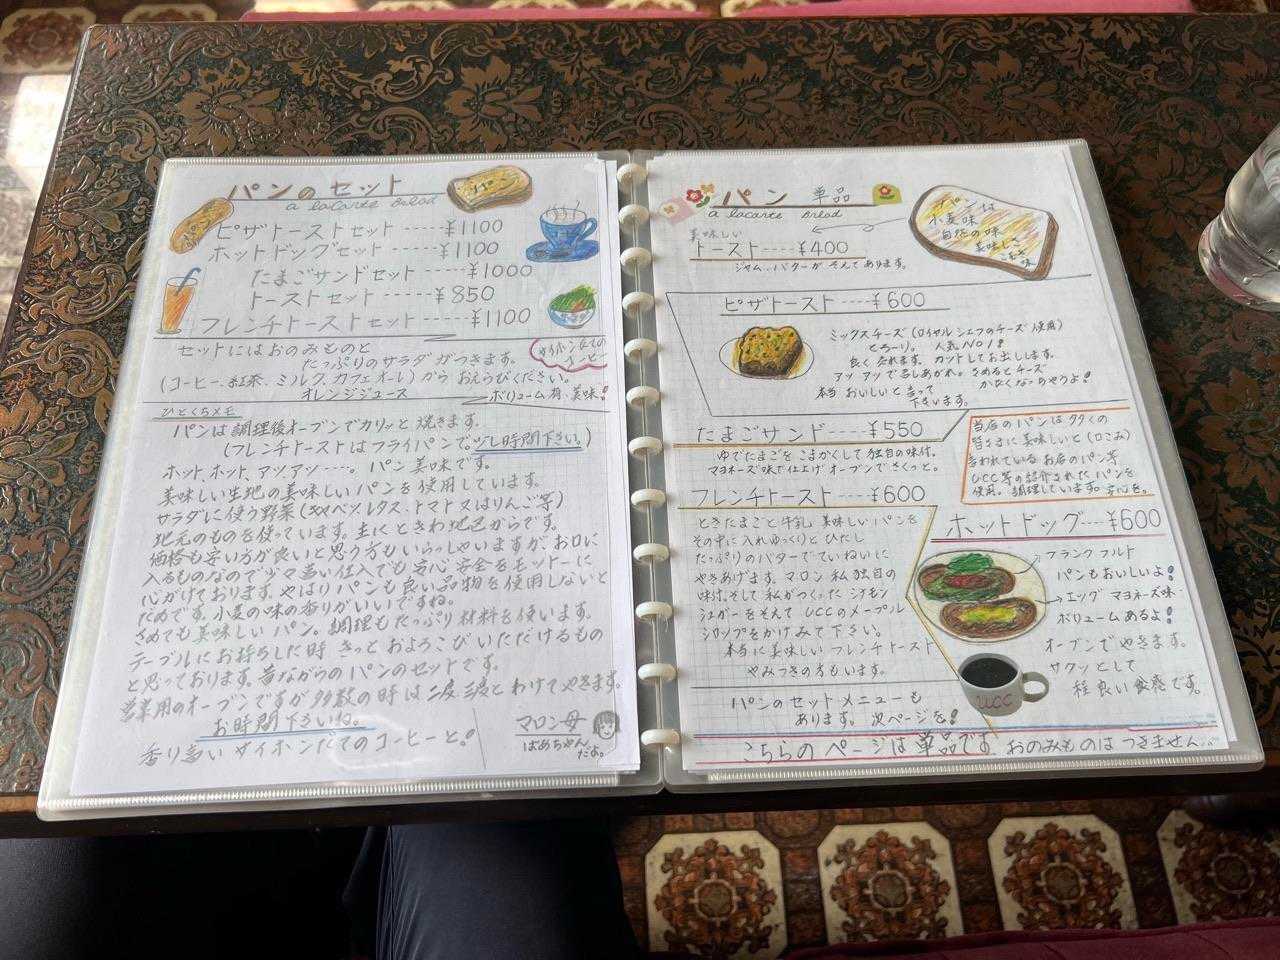 パンのセット
a lacarte bread
ピザトーストセット ---- ¥1100
ホットドッグセット ---- ¥1100
たまごサンドセット ----- ¥1000
トーストセット ------ ¥850
フレンチトーストセット ---- ¥1100
セットにはおのみものと
たっぷりのサラダがつきます。
サイホン立ての
コーヒー
(コーヒー、紅茶、ミルク、カフェオーレ)からおえらびください。
オレンジジュース
ボリューム有・美味!
ひとくちメモ
パンは調理後オーブンでカリッと焼きます。
(フレンチトーストはフライパンで。少し時間下さい。)
ホット、ホット、アツアツ‥‥。パン美味です。
美味しい生地の美味しいパンを使用しています。
サラダに使う野菜(キャベツ、レタス、トマトはりんご等)
地元のものを使っています。主にときわ地区からです。
価格も安い方が良いと思う方もいらっしゃいますが、お口に
入るものなので少々高い仕入でも安心安全をモットーに
心がけております。やはりパンも良い品物を使用しないと
だめです。小麦の味の香りがいいですね。
さめても美味しいパン。調理もたっぷり材料を使います。
テーブルにお持ちした時きっとおよろこびいただけるもの
と思っております。昔ながらのパンのセットです。
営業用のオーブンですが多数の時は二度三度とわけてやきます。
お時間下さいね。
香り高いサイホンだてのコーヒーと!
マロン母
ばあちゃん
だよ。
パン 単品
a lacarte bread
パンは
小麦味
自然の味
美味しさ
美味しい
トースト---- ¥400
ジャム、バターがそえてあります。
ピザトースト---- ¥600
ミックスチーズ(ロイヤルシェフのチーズ使用)
とろ〜り。人気NO1!
良く売れます。カットしてお出しします。
アツアツで召しあがれ。さめるとチーズ
かたくなっちゃうよ!
本当においしいと言って
下さいます。
たまごサンド ---- ¥550
ゆでたまごをこまかくして独自の味付。
マヨネーズ味で仕上げオーブンでさくっと。
当店のパンは多くの
皆さまに美味しいと(口こみ)
言われているお店のパン等
UCC等の紹介されたパンを
使用。調理しています。安心を。
フレンチトースト---- ¥600
ときたまごと牛乳美味しいパンを
その中に入れゆっくりとひたし
たっぷりのバターでていねいに
やきあげます。マロン私独自の
味付。そして私がつくったシナモン
シュガーをそえてUCCのメープル
シロップをかけみて下さい。
本当に美味しいフレンチトースト
やみつきの方もいます。
ホットドッグ--- ¥600
フランクフルト
パンもおいしいよ!
エッグ マヨネーズ味・
ボリュームあるよ!
オーブンでやきます。
サクッとして
程良い食感です。
UCC
パンのセットメニューも
あります。次ページを!
こちらのページは単品です。おのみものはつきません。